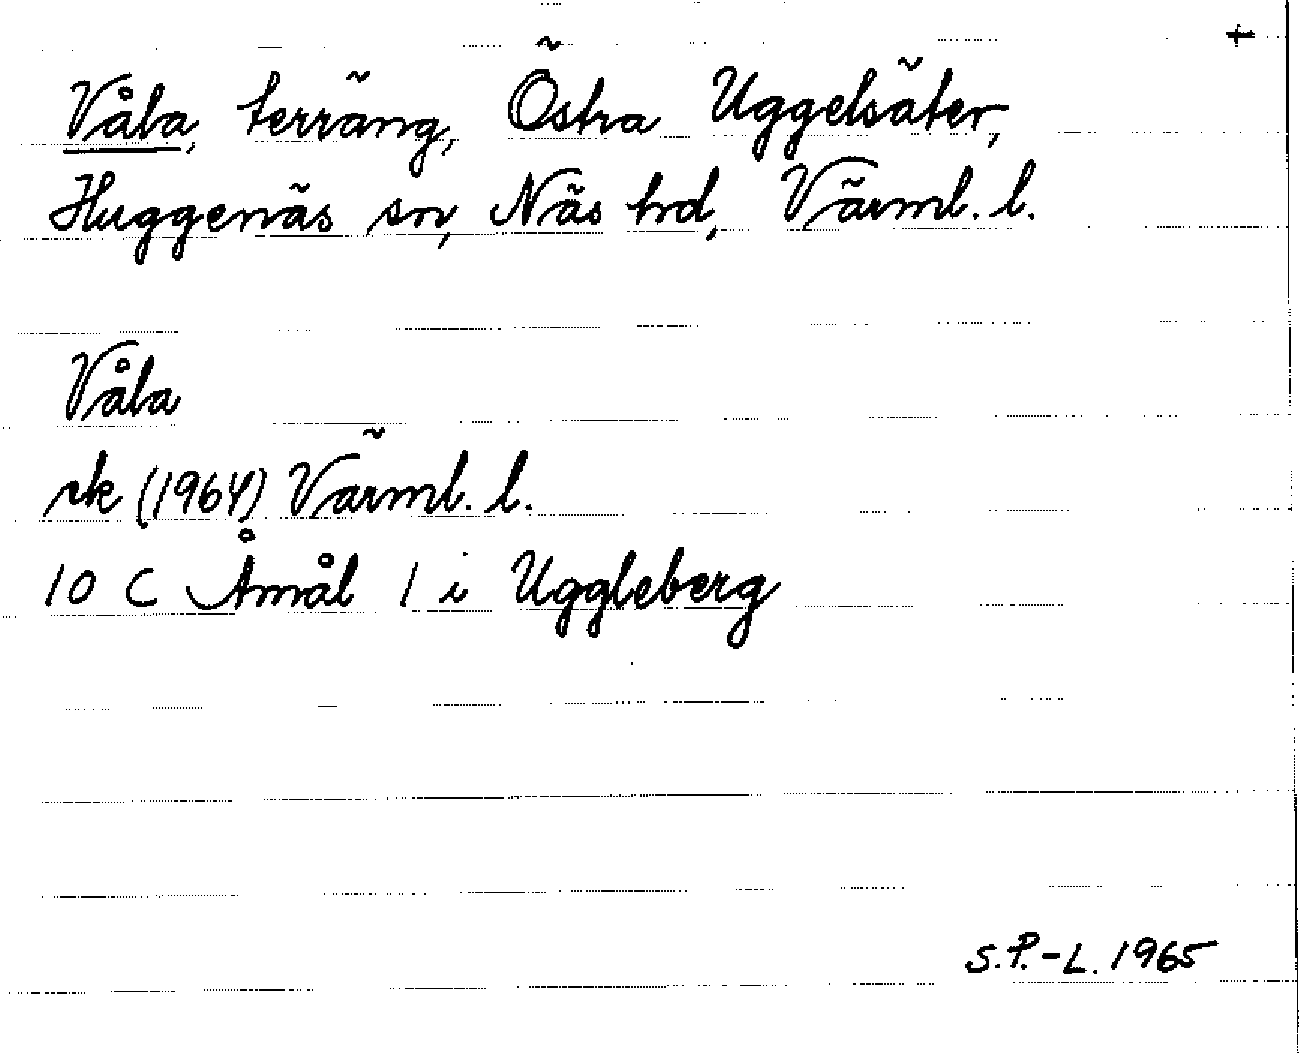 Våla, terräng, Östra Uggelsäter,
Huggenäs sn, Näs hd, Värml. l.
Våla
rk (1964) Värml. l.
10 C Åmål 1 i Uggleberg
S.P.-L. 1965